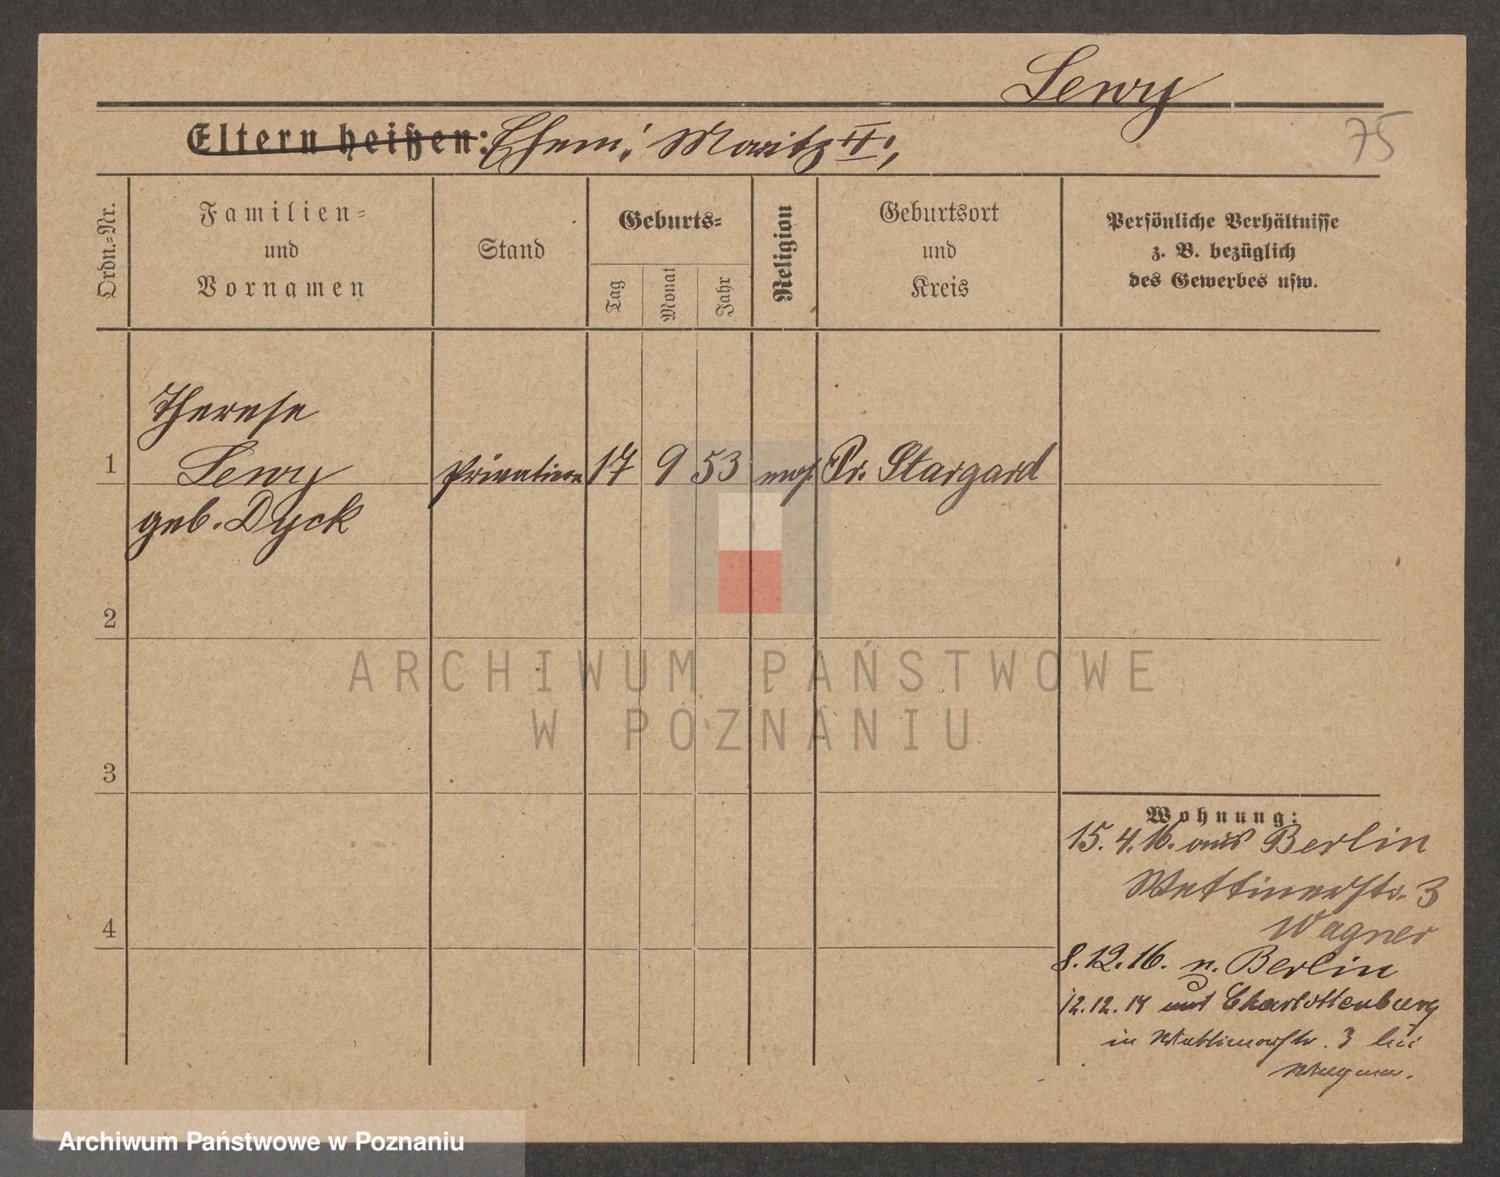 Lewy
Eltern heißen: Ehem: Moritz II,
75
Ordn.-Nr.
Familien-
und
Vornamen
Stand
Geburts-
Tag
Monat
Jahr
Religion
Geburtsort
und
Kreis
Persönliche Verhältnisse
z. B. bezüglich
des Gewerbes usw.
Therese
1 Lewy Privatiere 17 9 53 mos. Pr. Stargard
geb. Dyck
2
3
4
Wohnung:
15. 4. 16. aus Berlin
Wettinerstr. 3
Wagner
8. 12. 16. n. Berlin
12. 12. 17 aus Charlottenburg
in Wettinerstr. 3 bei
Wagner.
ARCHIWUM PAŃSTWOWE
W POZNANIU
Archiwum Państwowe w Poznaniu